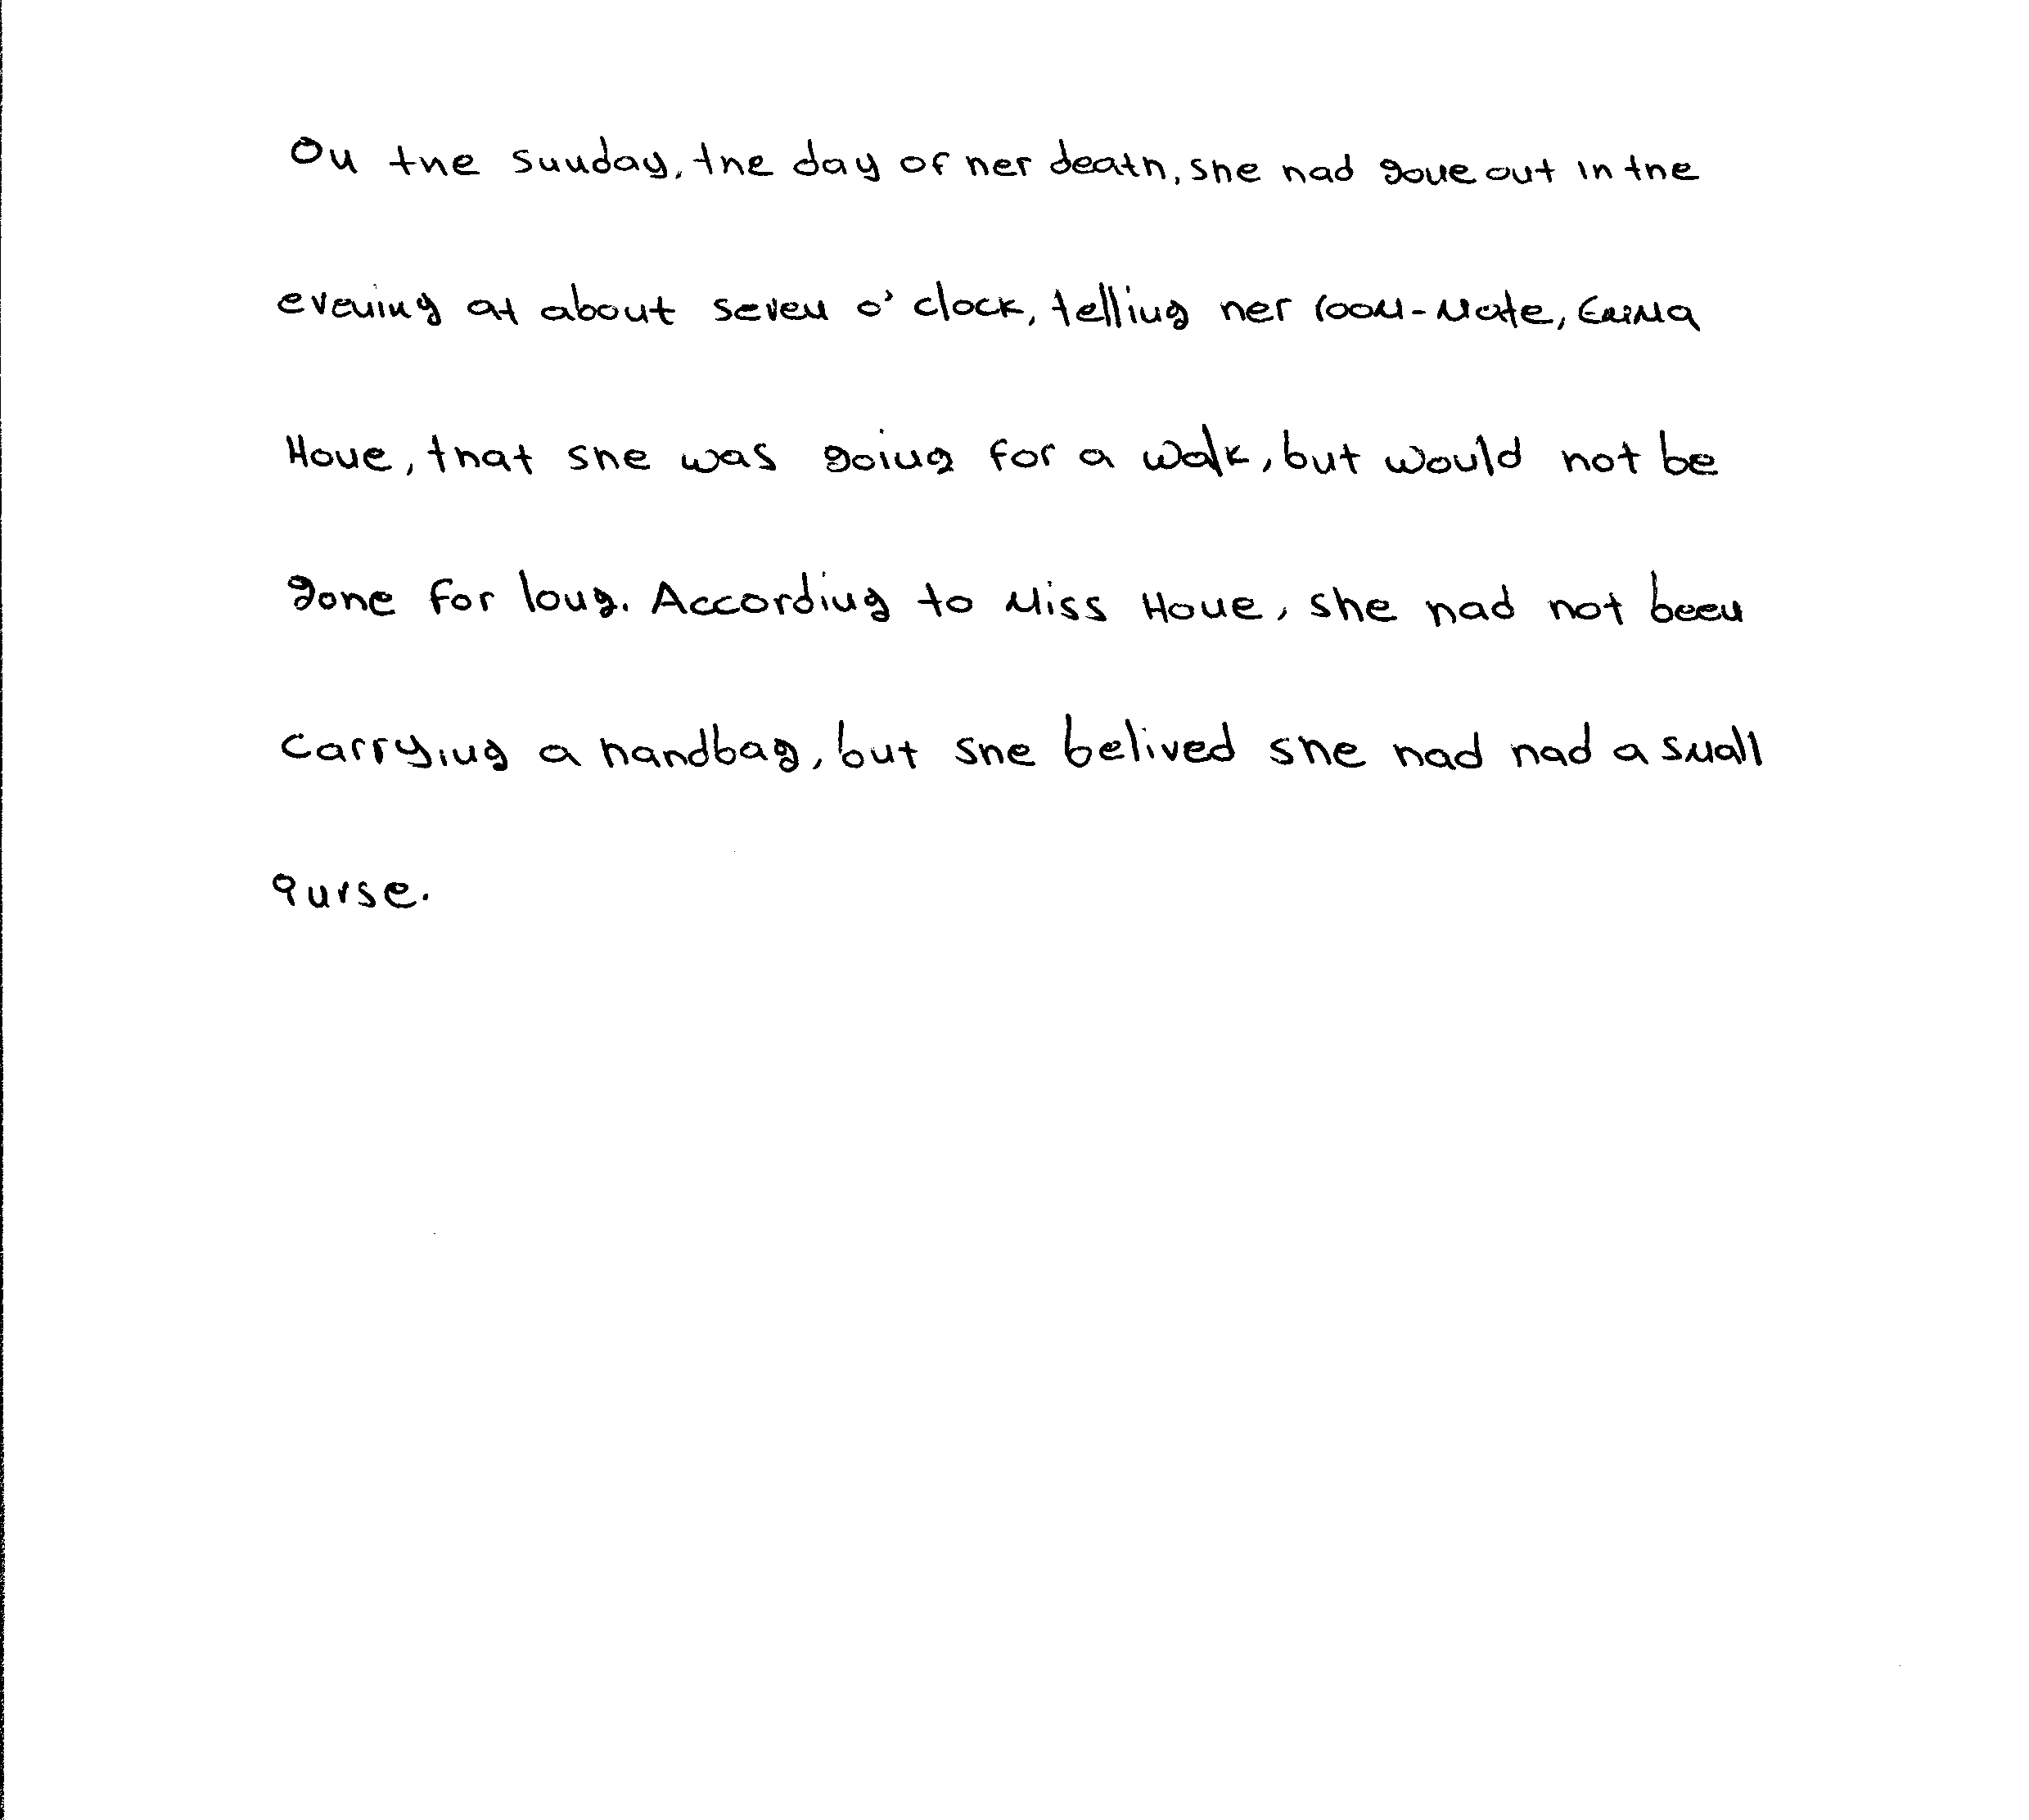 On the Sunday, the day of her death, she had gone out in the
evening at about seven o'clock, telling her room-mate,
Hone, that she was going for a walk, but would not be
gone for long. According to Miss Hone, she had not been
carrying a handbag, but she belived she had had a small
purse.